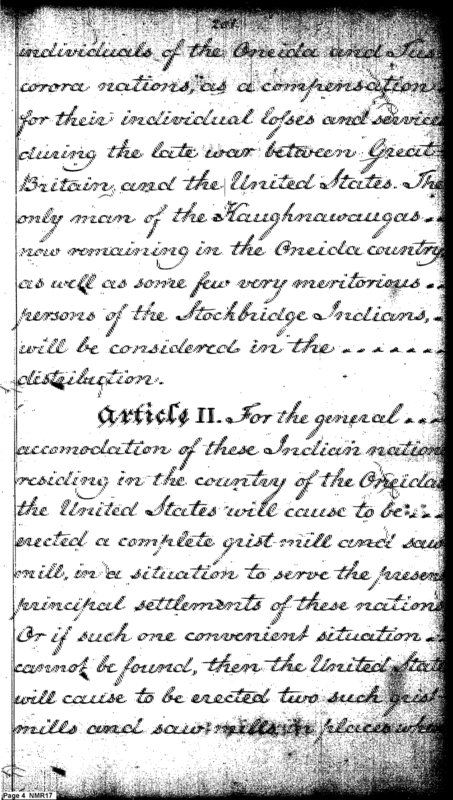 201.
individuals of the Oneida and Tus-
corora nations, as a compensation
for their individual losses and service
during the late war between Great-
Britain, and the United States. The
only man of the Kaughnawaugas
now remaining in the Oneida country,
as well as some few very meritorious
persons of the Stockbridge Indians,
will be considered in the
distribution.
Article II. For the general
accomodation of these Indian nation
residing in the country of the Oneidas
the United States will cause to be
erected a complete grist-mill and saw
mill, in a situation to serve the presen
principal settlements of these nations
Or if such one convenient situation
cannot be found, then the United State
will cause to be erected two such grist-
mills and saw-mills, in places whe
Page 4 NMR17